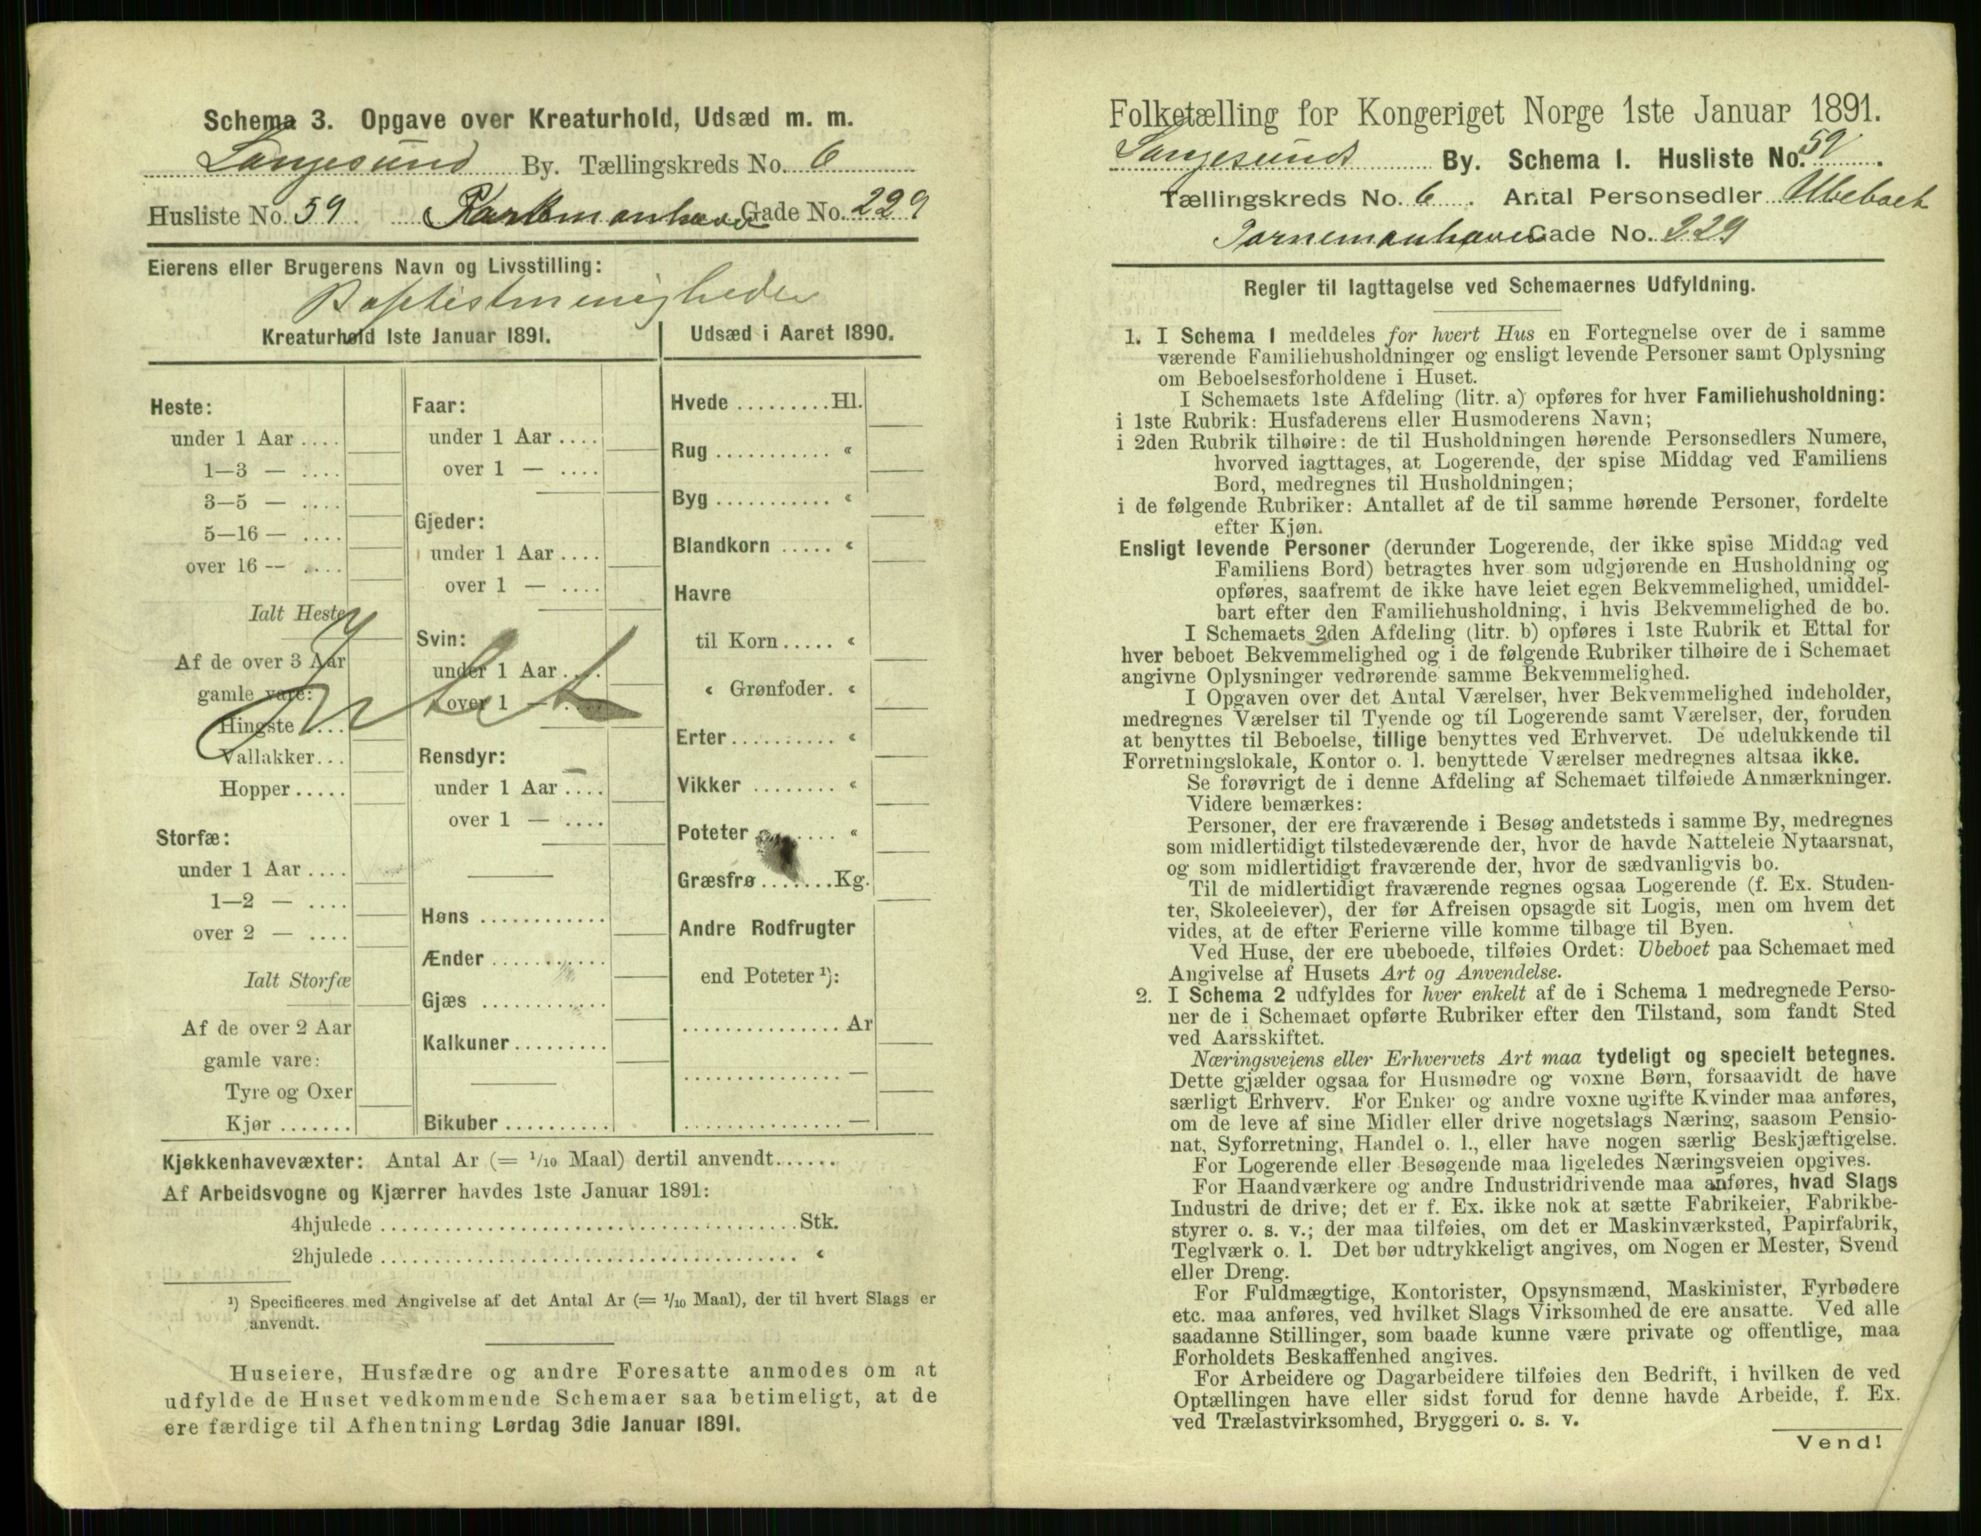 Schema 3. Opgave over Kreaturhold, Udsæd m. m.
Langesund By. Tællingskreds No. 6
Husliste No. 59 Gade No. 229
Eierens eller Brugerens Navn og Livsstilling:
Baptistmenigheden
Kreaturhold 1ste Januar 1891.
Heste:
under 1 Aar ....
1—3 — ....
3—5 — ....
5—16 — ....
over 16 — ....
Ialt Heste
Af de over 3 Aar
gamle vare:
Hingste ....
Vallakker...
Hopper .....
Storfæ:
under 1 Aar ....
1—2 — ....
over 2 — ....
Ialt Storfæ
Af de over 2 Aar
gamle vare:
Tyre og Oxer
Kjør .......
Intet
Faar:
under 1 Aar ....
over 1 — ....
Gjeder:
under 1 Aar ....
over 1 — ....
Svin:
under 1 Aar ....
over 1 — ....
Rensdyr:
under 1 Aar ....
over 1 — ....
Høns ............
Ænder ...........
Gjæs ............
Kalkuner.........
Bikuber ..........
Udsæd i Aaret 1890.
Hvede .........Hl.
Rug ........... «
Byg ........... «
Blandkorn ..... «
Havre
til Korn..... «
« Grønfoder. «
Erter.......... «
Vikker ........ «
Poteter ....... «
Græsfrø.......Kg.
Andre Rodfrugter
end Poteter ¹):
...............Ar
............... —
............... —
Kjøkkenhavevæxter: Antal Ar (= 1/10 Maal) dertil anvendt......
Af Arbeidsvogne og Kjærrer havdes 1ste Januar 1891:
4hjulede ......................................Stk.
2hjulede ...................................... «
¹) Specificeres med Angivelse af det Antal Ar (= 1/10 Maal), der til hvert Slags er
anvendt.
Huseiere, Husfædre og andre Foresatte anmodes om at
udfylde de Huset vedkommende Schemaer saa betimeligt, at de
ere færdige til Afhentning Lørdag 3die Januar 1891.
Folketælling for Kongeriget Norge 1ste Januar 1891.
Langesunds By. Schema 1. Husliste No. 59.
Tællingskreds No. 6. Antal Personsedler Ubeboet
Gade No. 229
Regler til Iagttagelse ved Schemaernes Udfyldning.
1. I Schema 1 meddeles for hvert Hus en Fortegnelse over de i samme
værende Familiehusholdninger og ensligt levende Personer samt Oplysning
om Beboelsesforholdene i Huset.
I Schemaets 1ste Afdeling (litr. a) opføres for hver Familiehusholdning:
i 1ste Rubrik: Husfaderens eller Husmoderens Navn;
i 2den Rubrik tilhøire: de til Husholdningen hørende Personsedlers Numere,
hvorved iagttages, at Logerende, der spise Middag ved Familiens
Bord, medregnes til Husholdningen;
i de følgende Rubriker: Antallet af de til samme hørende Personer, fordelte
efter Kjøn.
Ensligt levende Personer (derunder Logerende, der ikke spise Middag ved
Familiens Bord) betragtes hver som udgjørende en Husholdning og
opføres, saafremt de ikke have leiet egen Bekvemmelighed, umiddel-
bart efter den Familiehusholdning, i hvis Bekvemmelighed de bo.
I Schemaets 2den Afdeling (litr. b) opføres i 1ste Rubrik et Ettal for
hver beboet Bekvemmelighed og i de følgende Rubriker tilhøire de i Schemaet
angivne Oplysninger vedrørende samme Bekvemmelighed.
I Opgaven over det Antal Værelser, hver Bekvemmelighed indeholder,
medregnes Værelser til Tyende og til Logerende samt Værelser, der, foruden
at benyttes til Beboelse, tillige benyttes ved Erhvervet. De udelukkende til
Forretningslokale, Kontor o. l. benyttede Værelser medregnes altsaa ikke.
Se forøvrigt de i denne Afdeling af Schemaet tilføiede Anmærkninger.
Videre bemærkes:
Personer, der ere fraværende i Besøg andetsteds i samme By, medregnes
som midlertidigt tilstedeværende der, hvor de havde Natteleie Nytaarsnat,
og som midlertidigt fraværende der, hvor de sædvanligvis bo.
Til de midlertidigt fraværende regnes ogsaa Logerende (f. Ex. Studen-
ter, Skoleelever), der før Afreisen opsagde sit Logis, men om hvem det
vides, at de efter Ferierne ville komme tilbage til Byen.
Ved Huse, der ere ubeboede, tilføies Ordet: Ubeboet paa Schemaet med
Angivelse af Husets Art og Anvendelse.
2. I Schema 2 udfyldes for hver enkelt af de i Schema 1 medregnede Perso-
ner de i Schemaet opførte Rubriker efter den Tilstand, som fandt Sted
ved Aarsskiftet.
Næringsveiens eller Erhvervets Art maa tydeligt og specielt betegnes.
Dette gjælder ogsaa for Husmødre og voxne Børn, forsaavidt de have
særligt Erhverv. For Enker og andre voxne ugifte Kvinder maa anføres,
om de leve af sine Midler eller drive nogetslags Næring, saasom Pensio-
nat, Syforretning, Handel o. l., eller have nogen særlig Beskjæftigelse.
For Logerende eller Besøgende maa ligeledes Næringsveien opgives.
For Haandværkere og andre Industridrivende maa anføres, hvad Slags
Industri de drive; det er f. Ex. ikke nok at sætte Fabrikeier, Fabrikbe-
styrer o. s. v.; der maa tilføies, om det er Maskinværksted, Papirfabrik,
Teglværk o. l. Det bør udtrykkeligt angives, om Nogen er Mester, Svend
eller Dreng.
For Fuldmægtige, Kontorister, Opsynsmænd, Maskinister, Fyrbødere
etc. maa anføres, ved hvilket Slags Virksomhed de ere ansatte. Ved alle
saadanne Stillinger, som baade kunne være private og offentlige, maa
Forholdets Beskaffenhed angives.
For Arbeidere og Dagarbeidere tilføies den Bedrift, i hvilken de ved
Optællingen have eller sidst forud for denne havde Arbeide, f. Ex.
ved Trælastvirksomhed, Bryggeri o. s. v.
Vend!